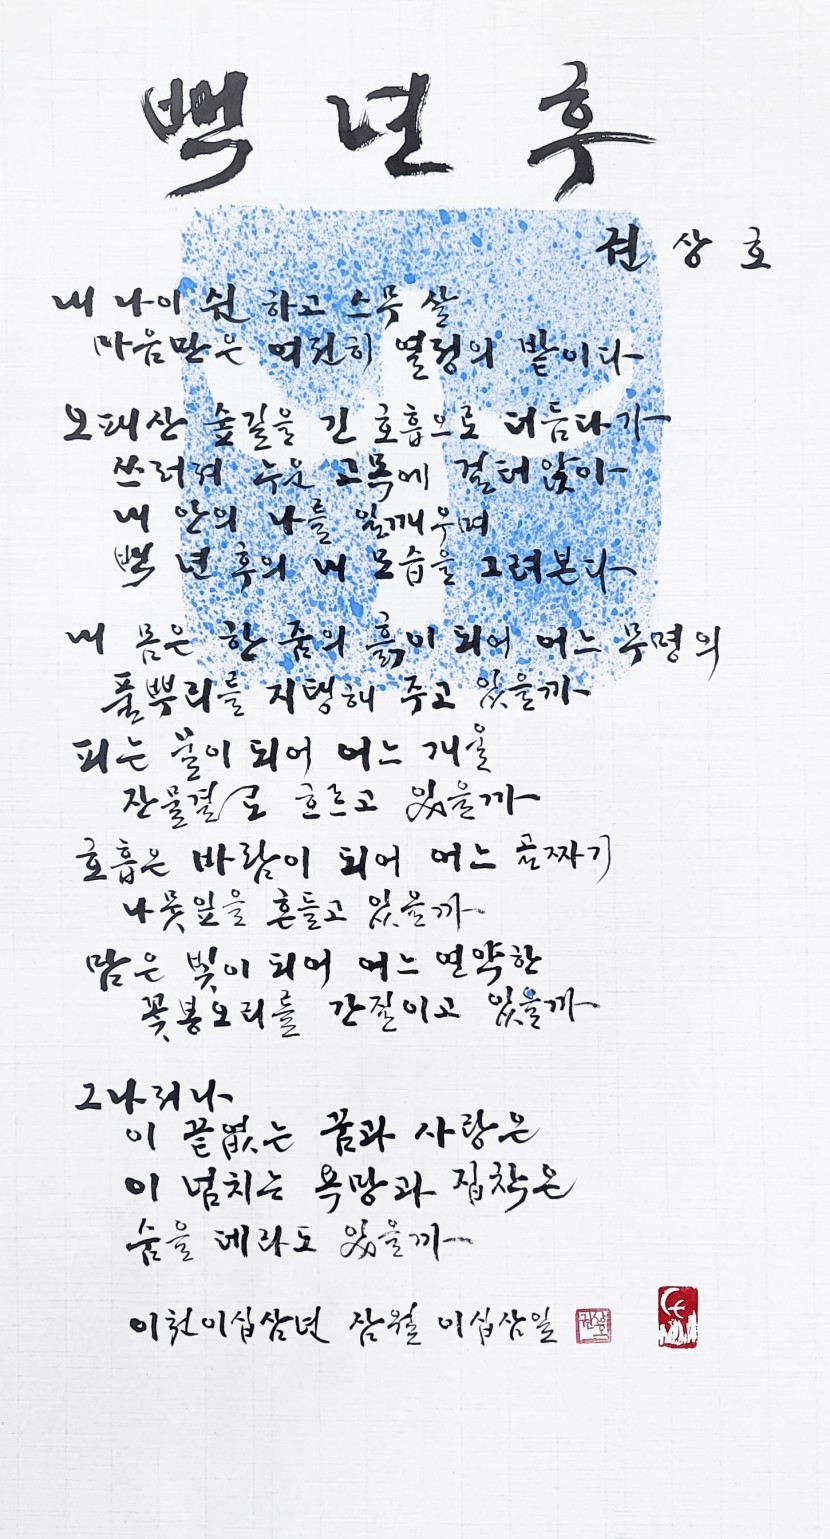 백 년 후
권 상 호
내 나이 쉰 하고 스무 살
마음만은 여전히 열정의 밭이다
오패산 숲길을 긴 호흡으로 더듬다가
쓰러져 누운 고목에 걸터앉아
내 안의 나를 일깨우며
백 년 후의 내 모습을 그려본다
내 몸은 한 줌의 흙이 되어 어느 무명의
풀뿌리를 지탱해 주고 있을까
피는 물이 되어 어느 개울
잔물결로 흐르고 있을까
호흡은 바람이 되어 어느 골짜기
나뭇잎을 흔들고 있을까
맘은 빛이 되어 어느 연약한
꽃봉오리를 간질이고 있을까
그나저나
이 끝없는 꿈과 사랑은
이 넘치는 욕망과 집착은
숨을 데라도 있을까
이천이십삼년 삼월 이십삼일